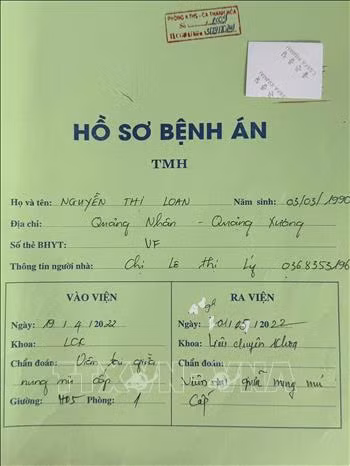 PHÒNG KTHS - CA THANH HÓA
HỒ SƠ BỆNH ÁN
TMH
Họ và tên: NGUYỄN THỊ LOAN Năm sinh: 03/03/1990
Địa chỉ: Quảng Nhân - Quảng Xương
Số thẻ BHYT: VF
Thông tin người nhà: Chị Lê Thị Lý 0368353196
VÀO VIỆN
Ngày: 19/4/2022
Khoa: LCK
Chẩn đoán: Viêm tai giữa
nung mủ cấp
Giường: H05 Phòng: 1
RA VIỆN
Ngày: 01/05/2022
Khoa: Liên chuyên khoa
Chẩn đoán:
Viêm tai giữa nung mủ
Cấp
TTXVN